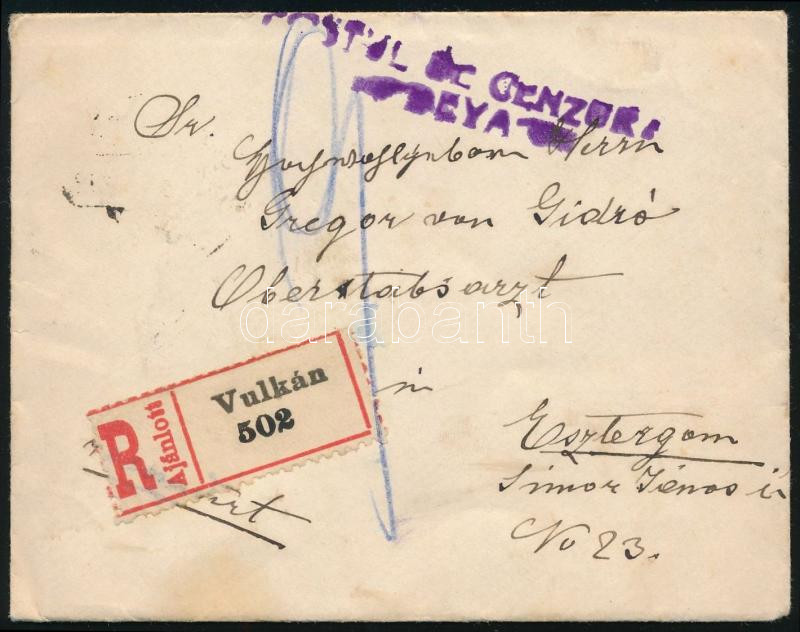 POSTUL DE CENZURA
DEVA
Sr.
Hochwohlgeboren Herrn
Gregor von Gidró
Oberstabsarzt
darabanth
in
R Ajánlott
Vulkán
502
Esztergom
Simor János ú
No 23.